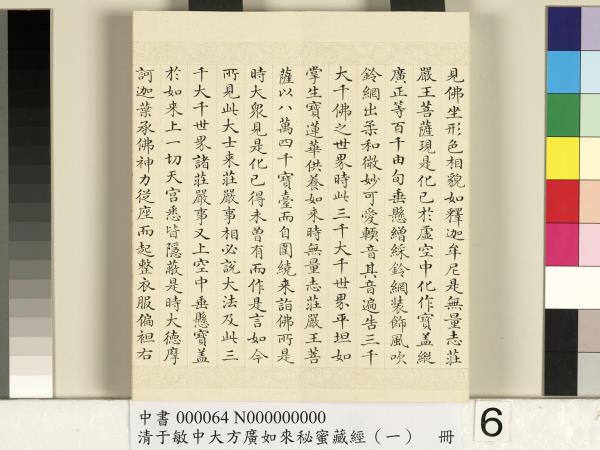 見佛坐形色相貌如釋迦牟尼是無量志莊
嚴王菩薩現是化已於虛空中化作寶蓋縱
廣正等百千由旬垂懸繒綵鈴網裝飾風吹
鈴網出柔和微妙可愛輭音其音遍告三千
大千佛之世界時此三千大千世界平坦如
掌生寶蓮華供養如來時無量志莊嚴王菩
薩以八萬四千寶臺而自圍繞來詣佛所是
時大衆見是化已得未曾有而作是言如今
所見此大士來莊嚴事相必說大法及此三
千大千世界諸莊嚴事又上空中垂懸寶蓋
於如來上一切天宮悉皆隱蔽是時大德摩
訶迦葉承佛神力從座而起整衣服偏袒右
中書 000064 N000000000
清于敏中大方廣如來秘蜜藏經（一） 冊
6